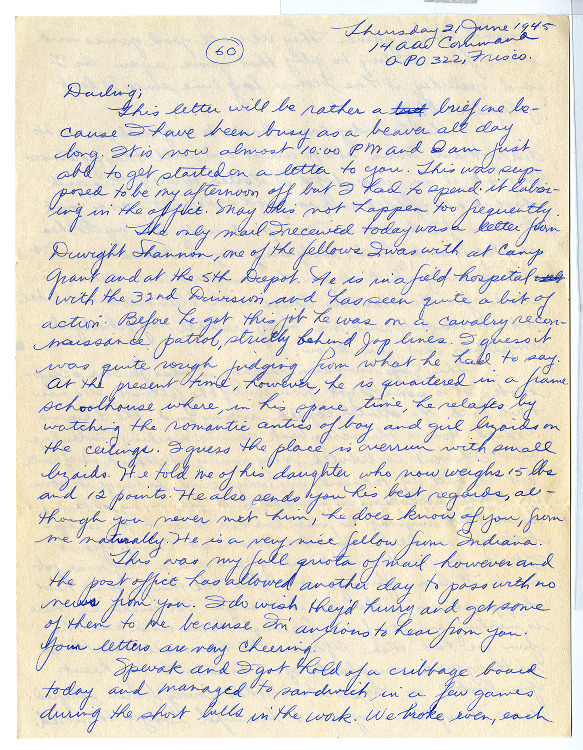 60
Thursday 21 June 1945
14 AA Command
APO 322, Frisco.
Darling;
This letter will be rather a brief one be-
cause I have been busy as a beaver all day
long. It is now almost 10:00 PM and I am just
able to get started on a letter to you. This was sup-
posed to be my afternoon off but I had to spend it labor-
ing in the office. May this not happen too frequently.
The only mail I received today was a letter from
Dwight Shannon, one of the fellows I was with at Camp
Grant and at the 5th Depot. He is in a field hospital
with the 32nd Division and has seen quite a bit of
action. Before he got this job he was on a cavalry recon-
naissance patrol, strictly behind Jap lines. I guess it
was quite rough judging from what he had to say.
At the present time, however, he is quartered in a frame
schoolhouse where, in his spare time, he relaxes by
watching the romantic antics of boy and girl lizards on
the ceilings. I guess the place is overrun with small
lizards. He told me of his daughter who now weighs 15 lbs
and 12 points. He also sends you his best regards, al-
though you never met him, he does know of you, from
me naturally. He is a very nice fellow from Indiana.
This was my full quota of mail however and
the post office has allowed another day to pass with no
news from you. I do wish they'd hurry and get some
of them to me because I'm anxious to hear from you.
Your letters are very cheering.
Spewak and I got hold of a cribbage board
today and managed to sandwich in a few games
during the short lulls in the work. We broke even, each